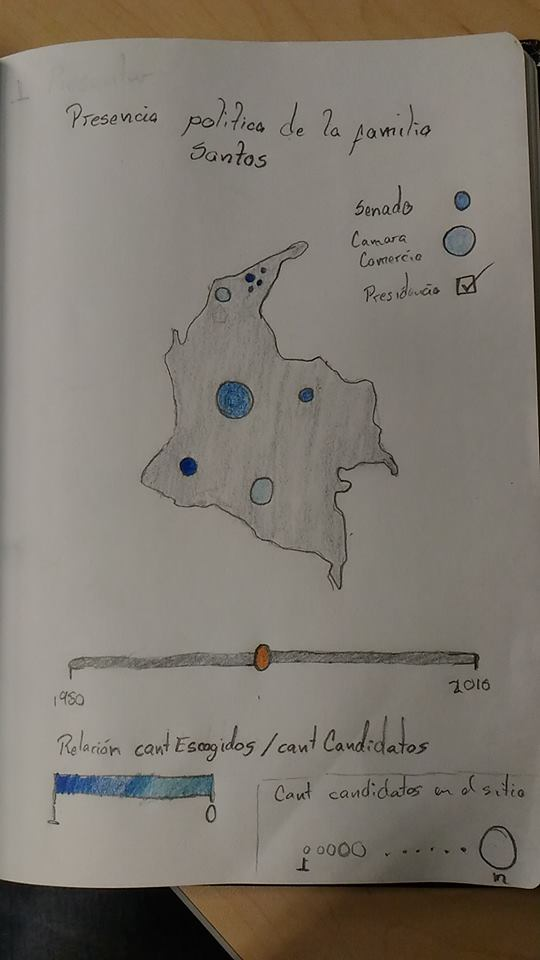 Presencia politica de la familia
Santos
Senado
Camara
Comercio
Presidencia
1980
2010
Relación cant Escogidos / cant Candidatos
1
0
Cant candidatos en el sitio
1
n